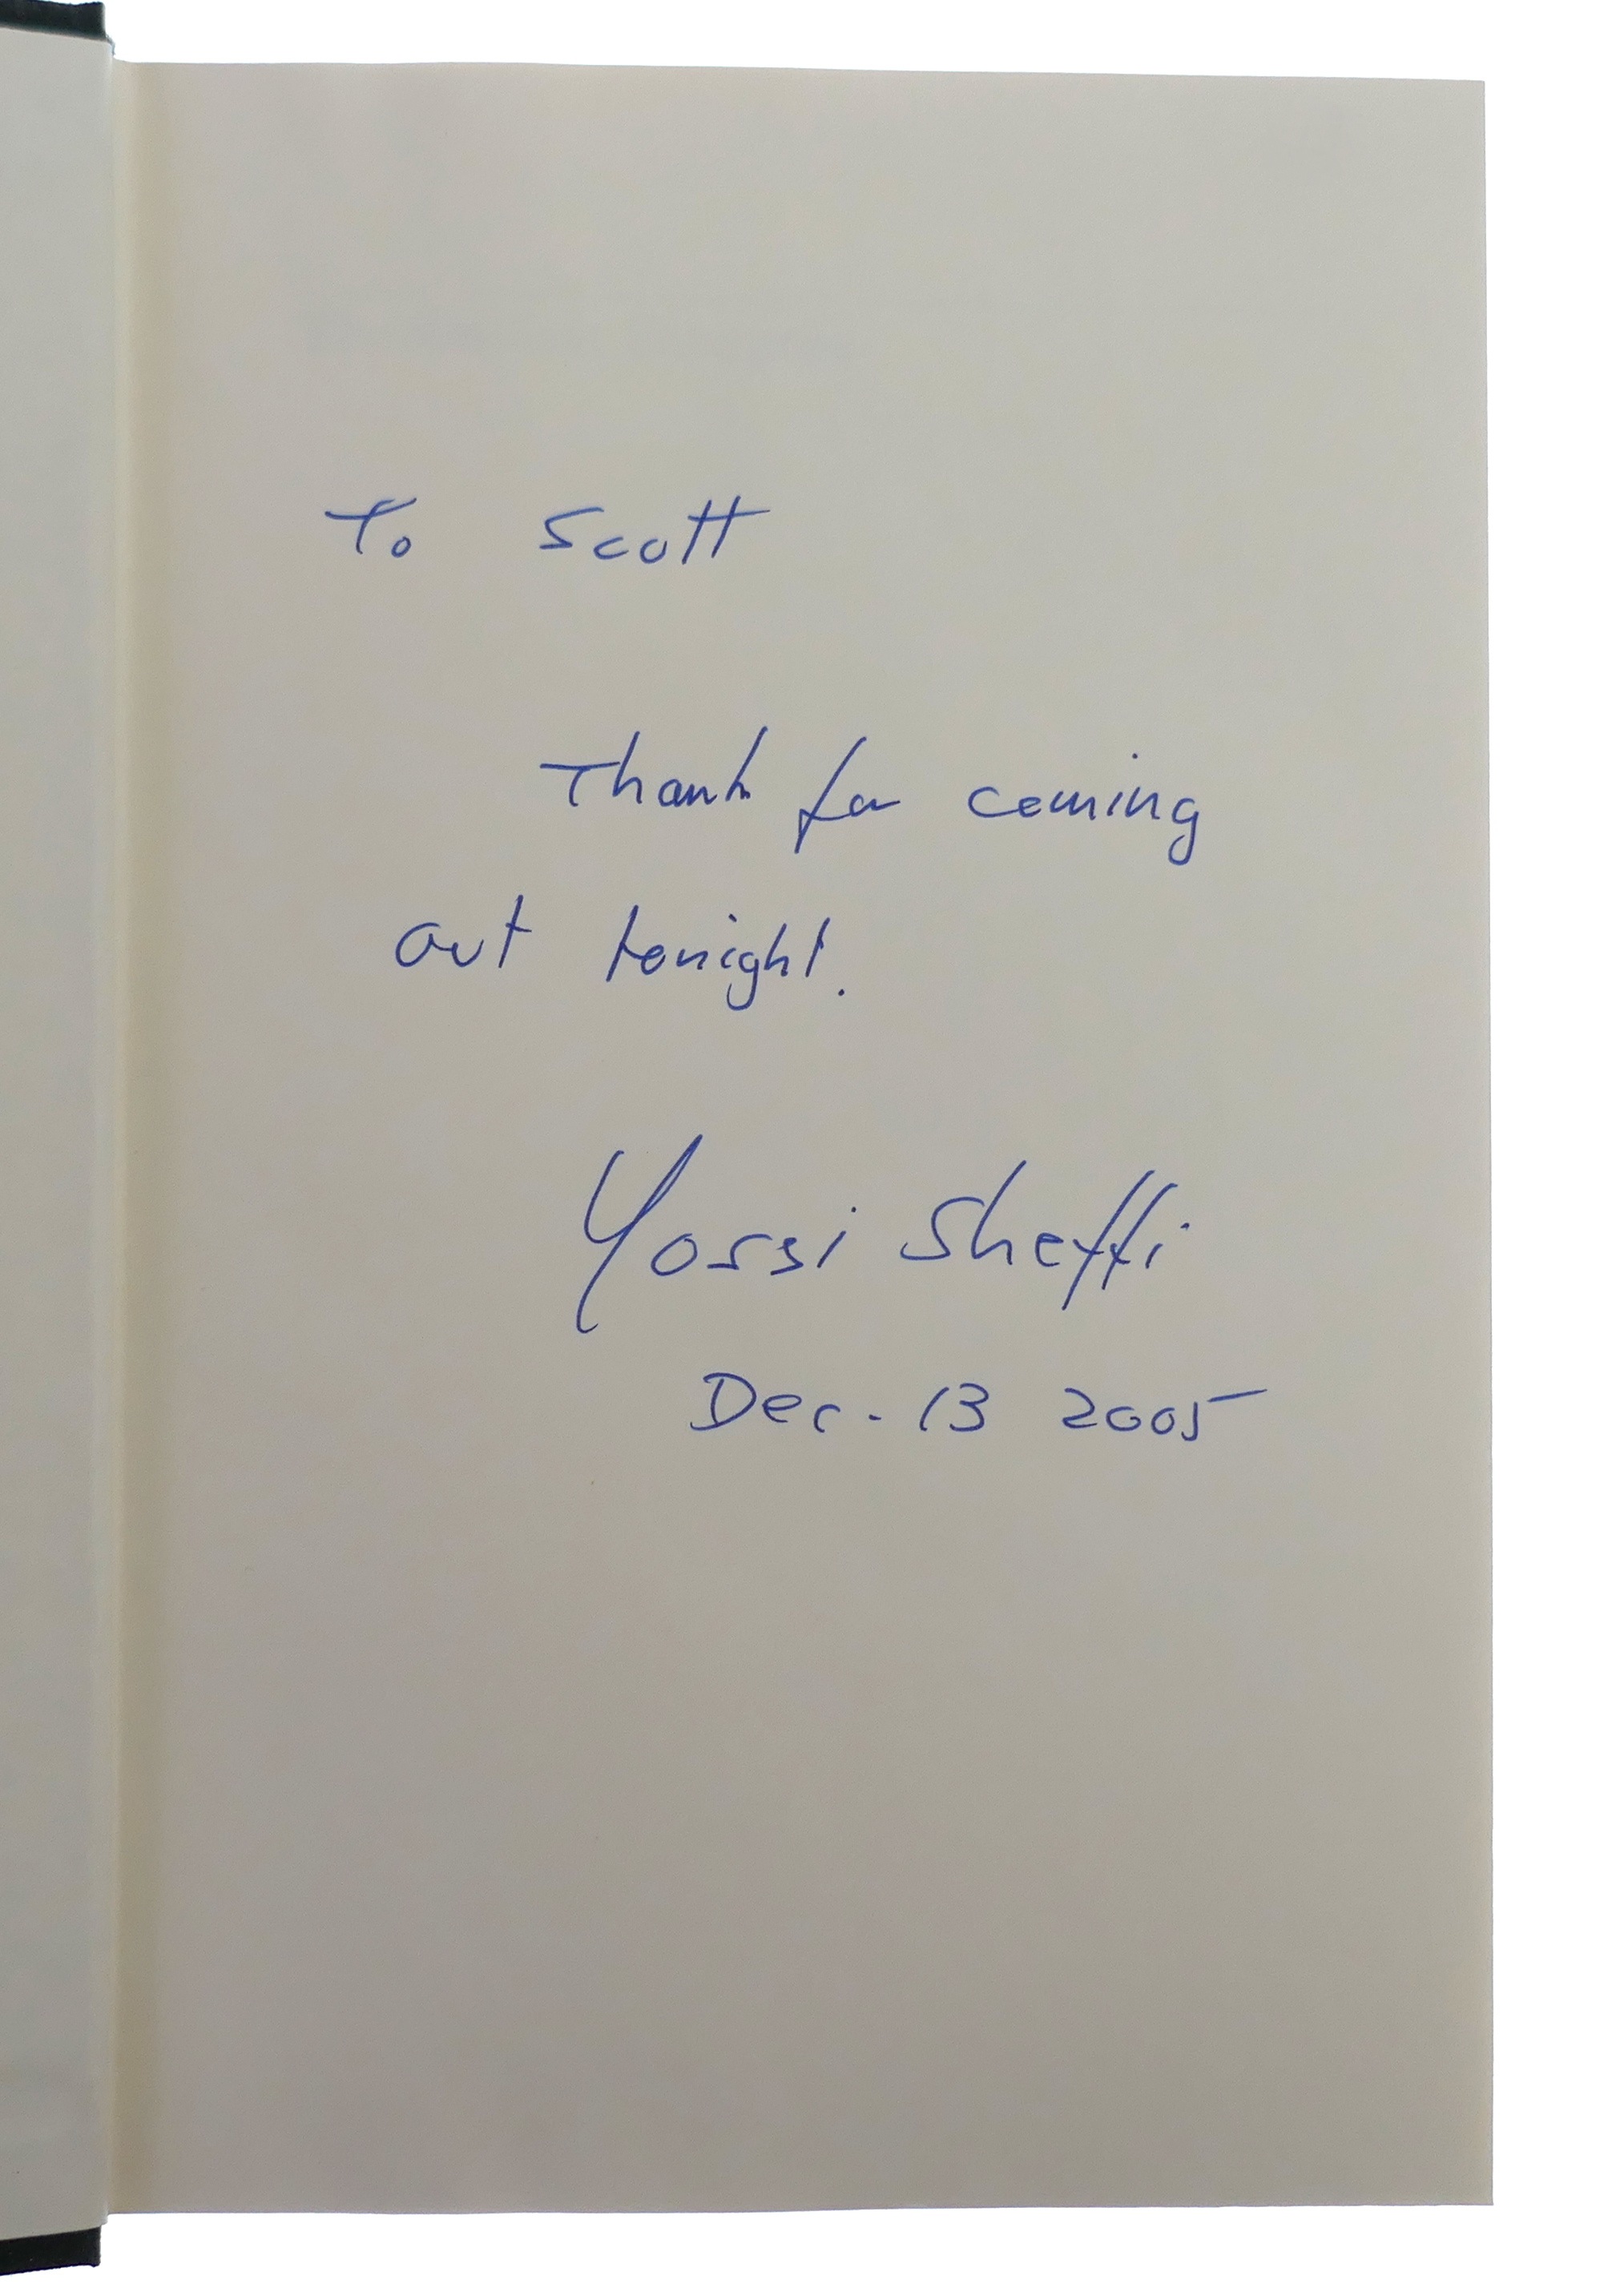 To Scott
Thank for coming
out tonight.
Yossi Sheffi
Dec. 13 2005